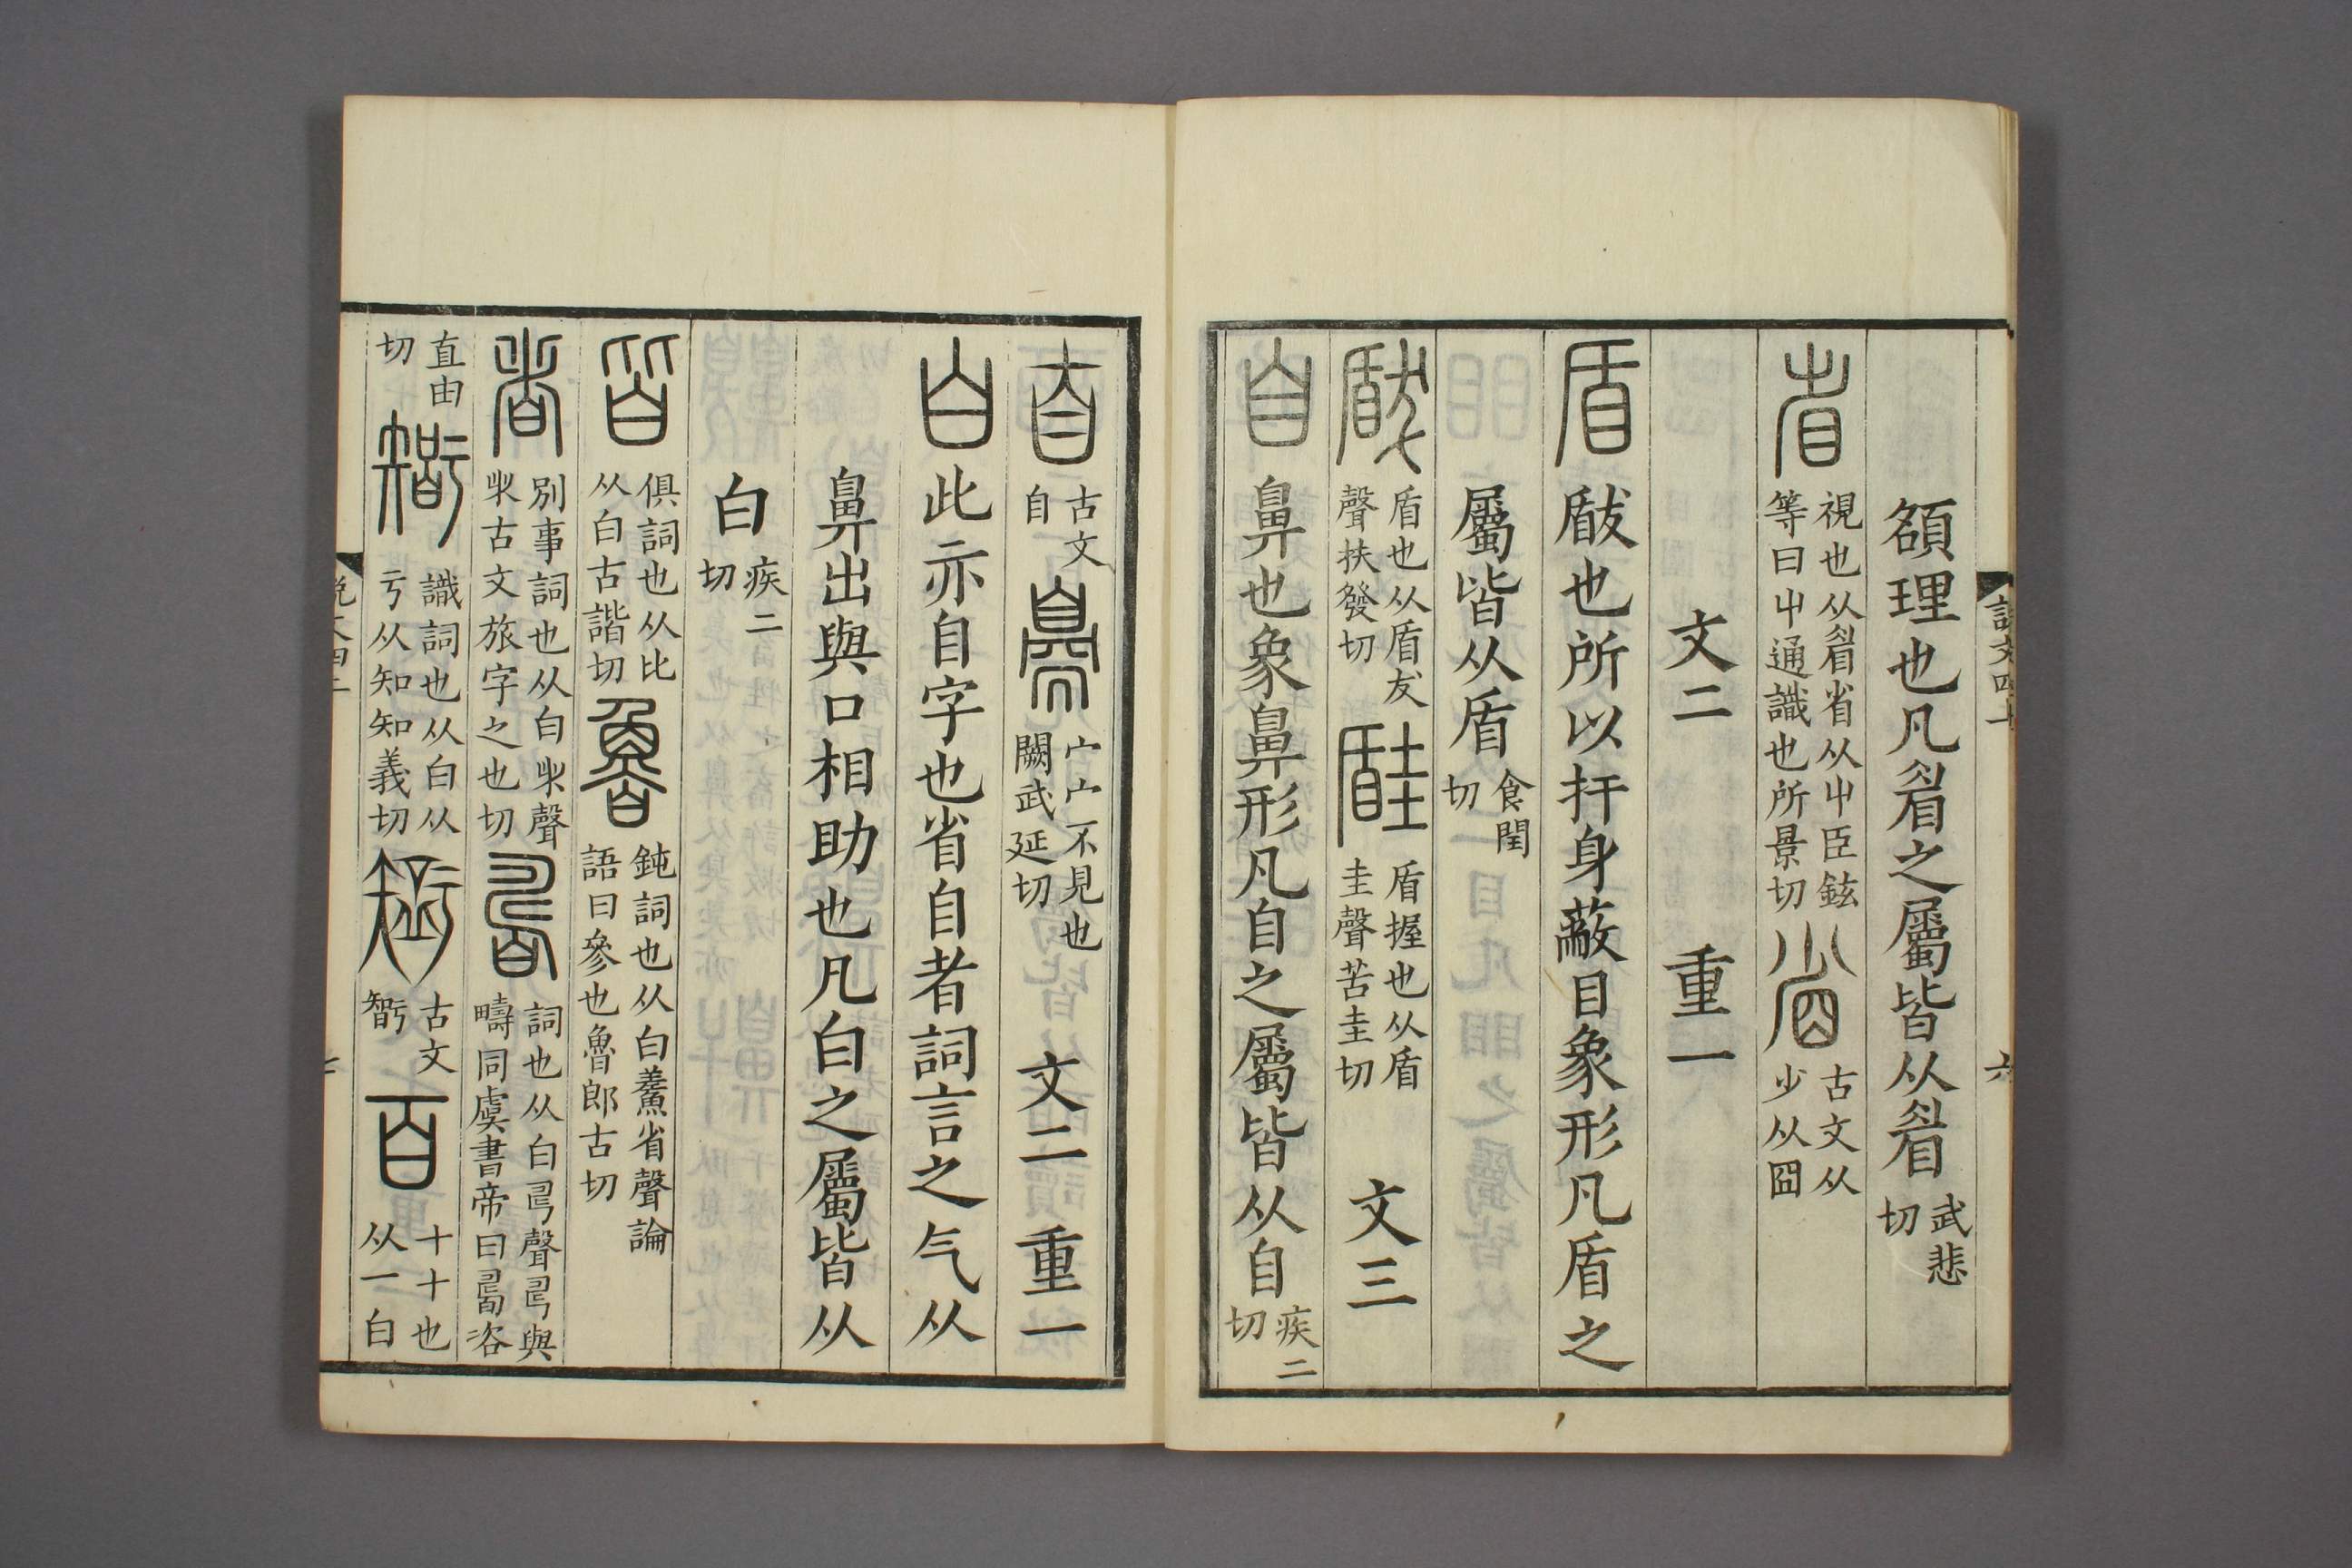 額理也凡眉之屬皆从眉武悲切
省視也从眉省从屮臣鉉等曰屮通識也所景切𡮐古文从少从囧
文二　重一
盾瞂也所以扞身蔽目象形凡盾之
屬皆从盾食閏切
瞂盾也从盾犮聲扶發切䣀盾握也从盾圭聲苦圭切　文三
自鼻也象鼻形凡自之屬皆从自疾二切
古文自
𦤝宀宀不見也闕武延切　文二　重一
白此亦自字也省自者詞言之气从
鼻出與口相助也凡白之屬皆从
白疾二切
皆俱詞也从比从白古諧切魯鈍詞也从白鮺省聲論語曰參也魯郎古切
者別事詞也从白𣥐聲𣥐古文旅字之也切𠷎詞也从白𠃬聲𠃬與疇同虞書帝曰𠷎咨
直由切𥏼識詞也从白从亏从知知義切古文𥏼百十十也从一白
說文四上
六
說文四上
七